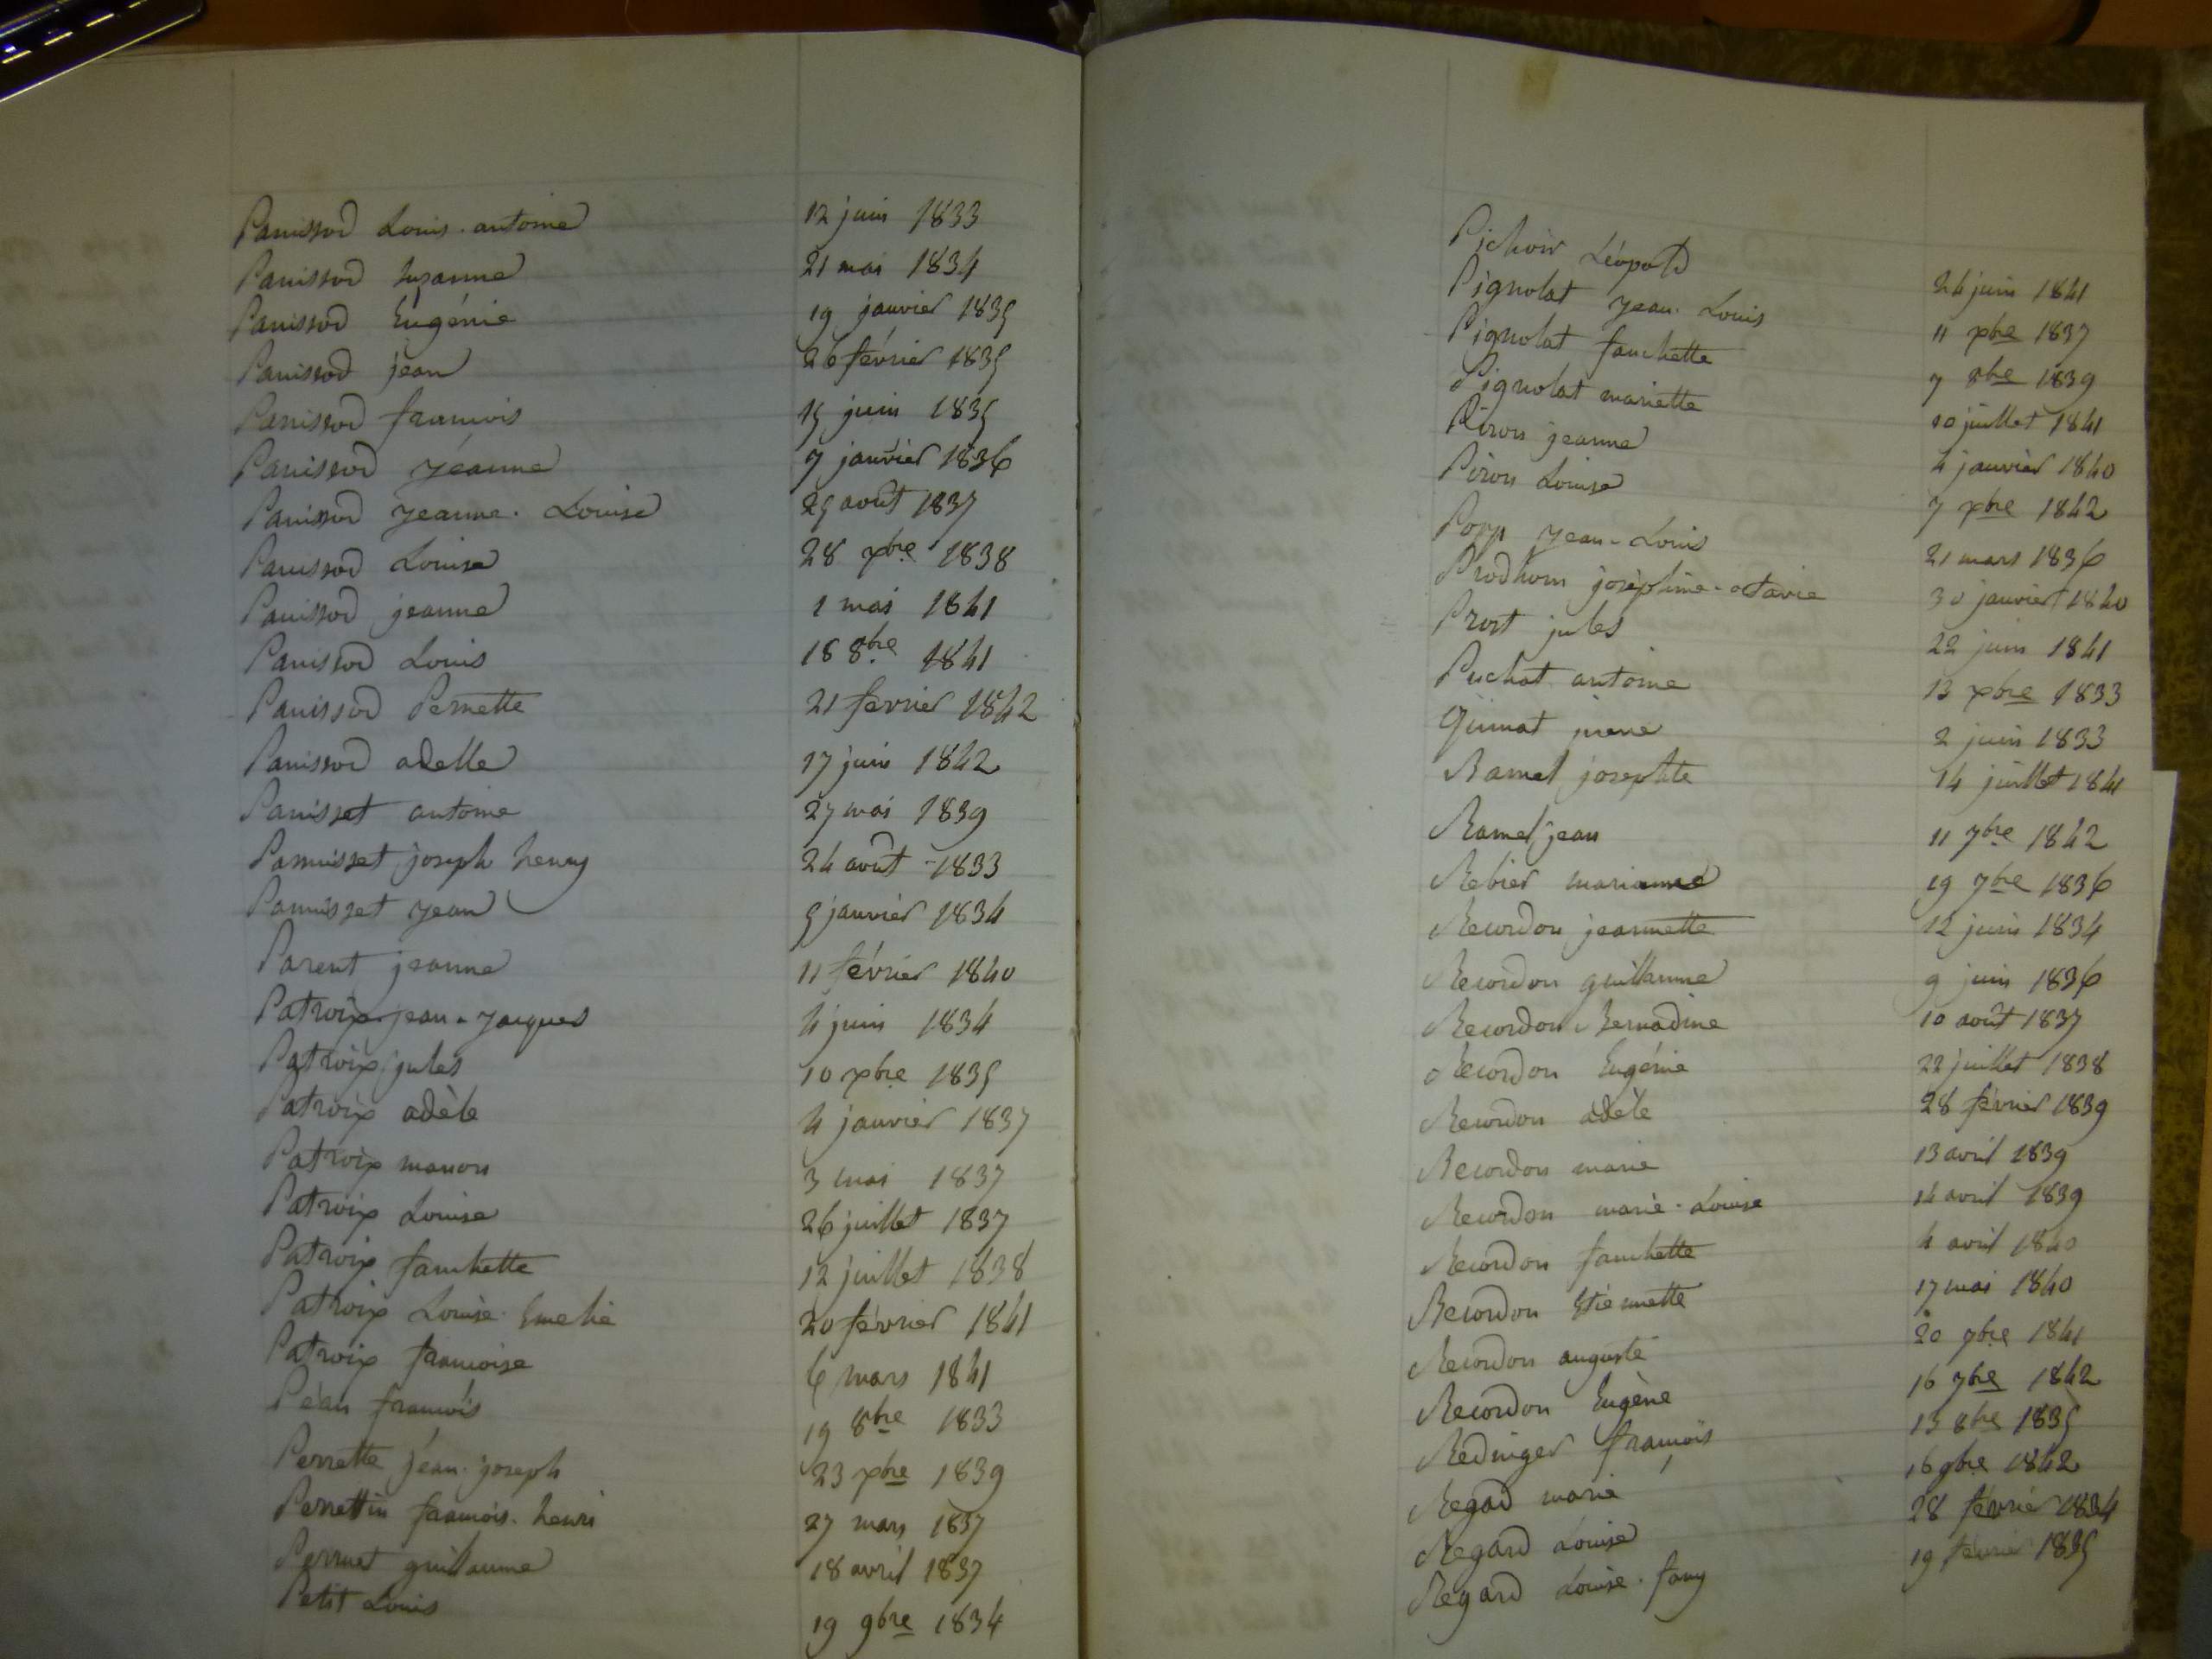 Panissod Louis. antoine 12 juin 1833
Panissod Suzanne 21 mai 1834
Panissod Eugénie 19 janvier 1835
Panissod jean 26 février 1835
Panissod francois 15 juin 1835
Panissod Jeanne 7 janvier 1836
Panissod Jeanne. Louise 25 août 1837
Panissod Louise 28 xbre 1838
Panissod jeanne 1 mai 1841
Panissod Louis 18 8bre 1841
Panissod Pernette 21 fevrier 1842
Panissod adelle 17 juin 1842
Panisset antoine 27 mai 1839
Pannisset joseph henry 24 août 1833
Pannisset Jean 5 janvier 1834
Parent jeanne 11 février 1840
Patroix jean-Jacques 4 juin 1834
Patroix jules 10 xbre 1835
Patroix adèle 4 janvier 1837
Patroix manon 3 mai 1837
Patroix Louise 26 juillet 1837
Patroix fanchette 12 juillet 1838
Patroix Louise. Emelie 20 février 1841
Patroix francoise 6 mars 1841
Péan francois 19 8bre 1833
Perrette jéan. joseph 23 xbre 1839
Perrettin francois. henri 27 mars 1837
Perruet guillaume 18 avril 1837
Petit Louis 19 9bre 1834
Pichoir Léopold 24 juin 1841
Pignolat Jean. Louis 11 xbre 1837
Pignolat fanchette 7 8bre 1839
Pignolat mariette 10 juillet 1841
Piron jeanne 4 janvier 1840
Piron Louise 7 xbre 1842
Popp Jean-Louis 21 mars 1836
Prodhom joséphine-octavie 30 janvier 1840
Prost jules 22 juin 1841
Puchat antoine 13 xbre 1833
2 juin 1833
Ramel josephte 14 juillet 1841
Ramel jean 11 7bre 1842
Rebier marianne 19 7bre 1836
Recordon jeannette 12 juin 1834
Recordon guillaume 9 juin 1836
Recordon Bernadine 10 août 1837
Recordon Eugénie 22 juillet 1838
Recordon adèle 28 février 1839
Recordon marie 13 avril 1839
Recordon marie-Louise 14 avril 1839
Recordon fanchette 4 avril 1840
Recordon Etiennette 17 mai 1840
Recordon auguste 20 7bre 1841
Recordon Eugène 16 7bre 1842
Redinger françois 13 8bre 1835
Regard marie 16 9bre 1842
Regard Louise 28 février 1834
Regard Louise. fany 19 février 1835